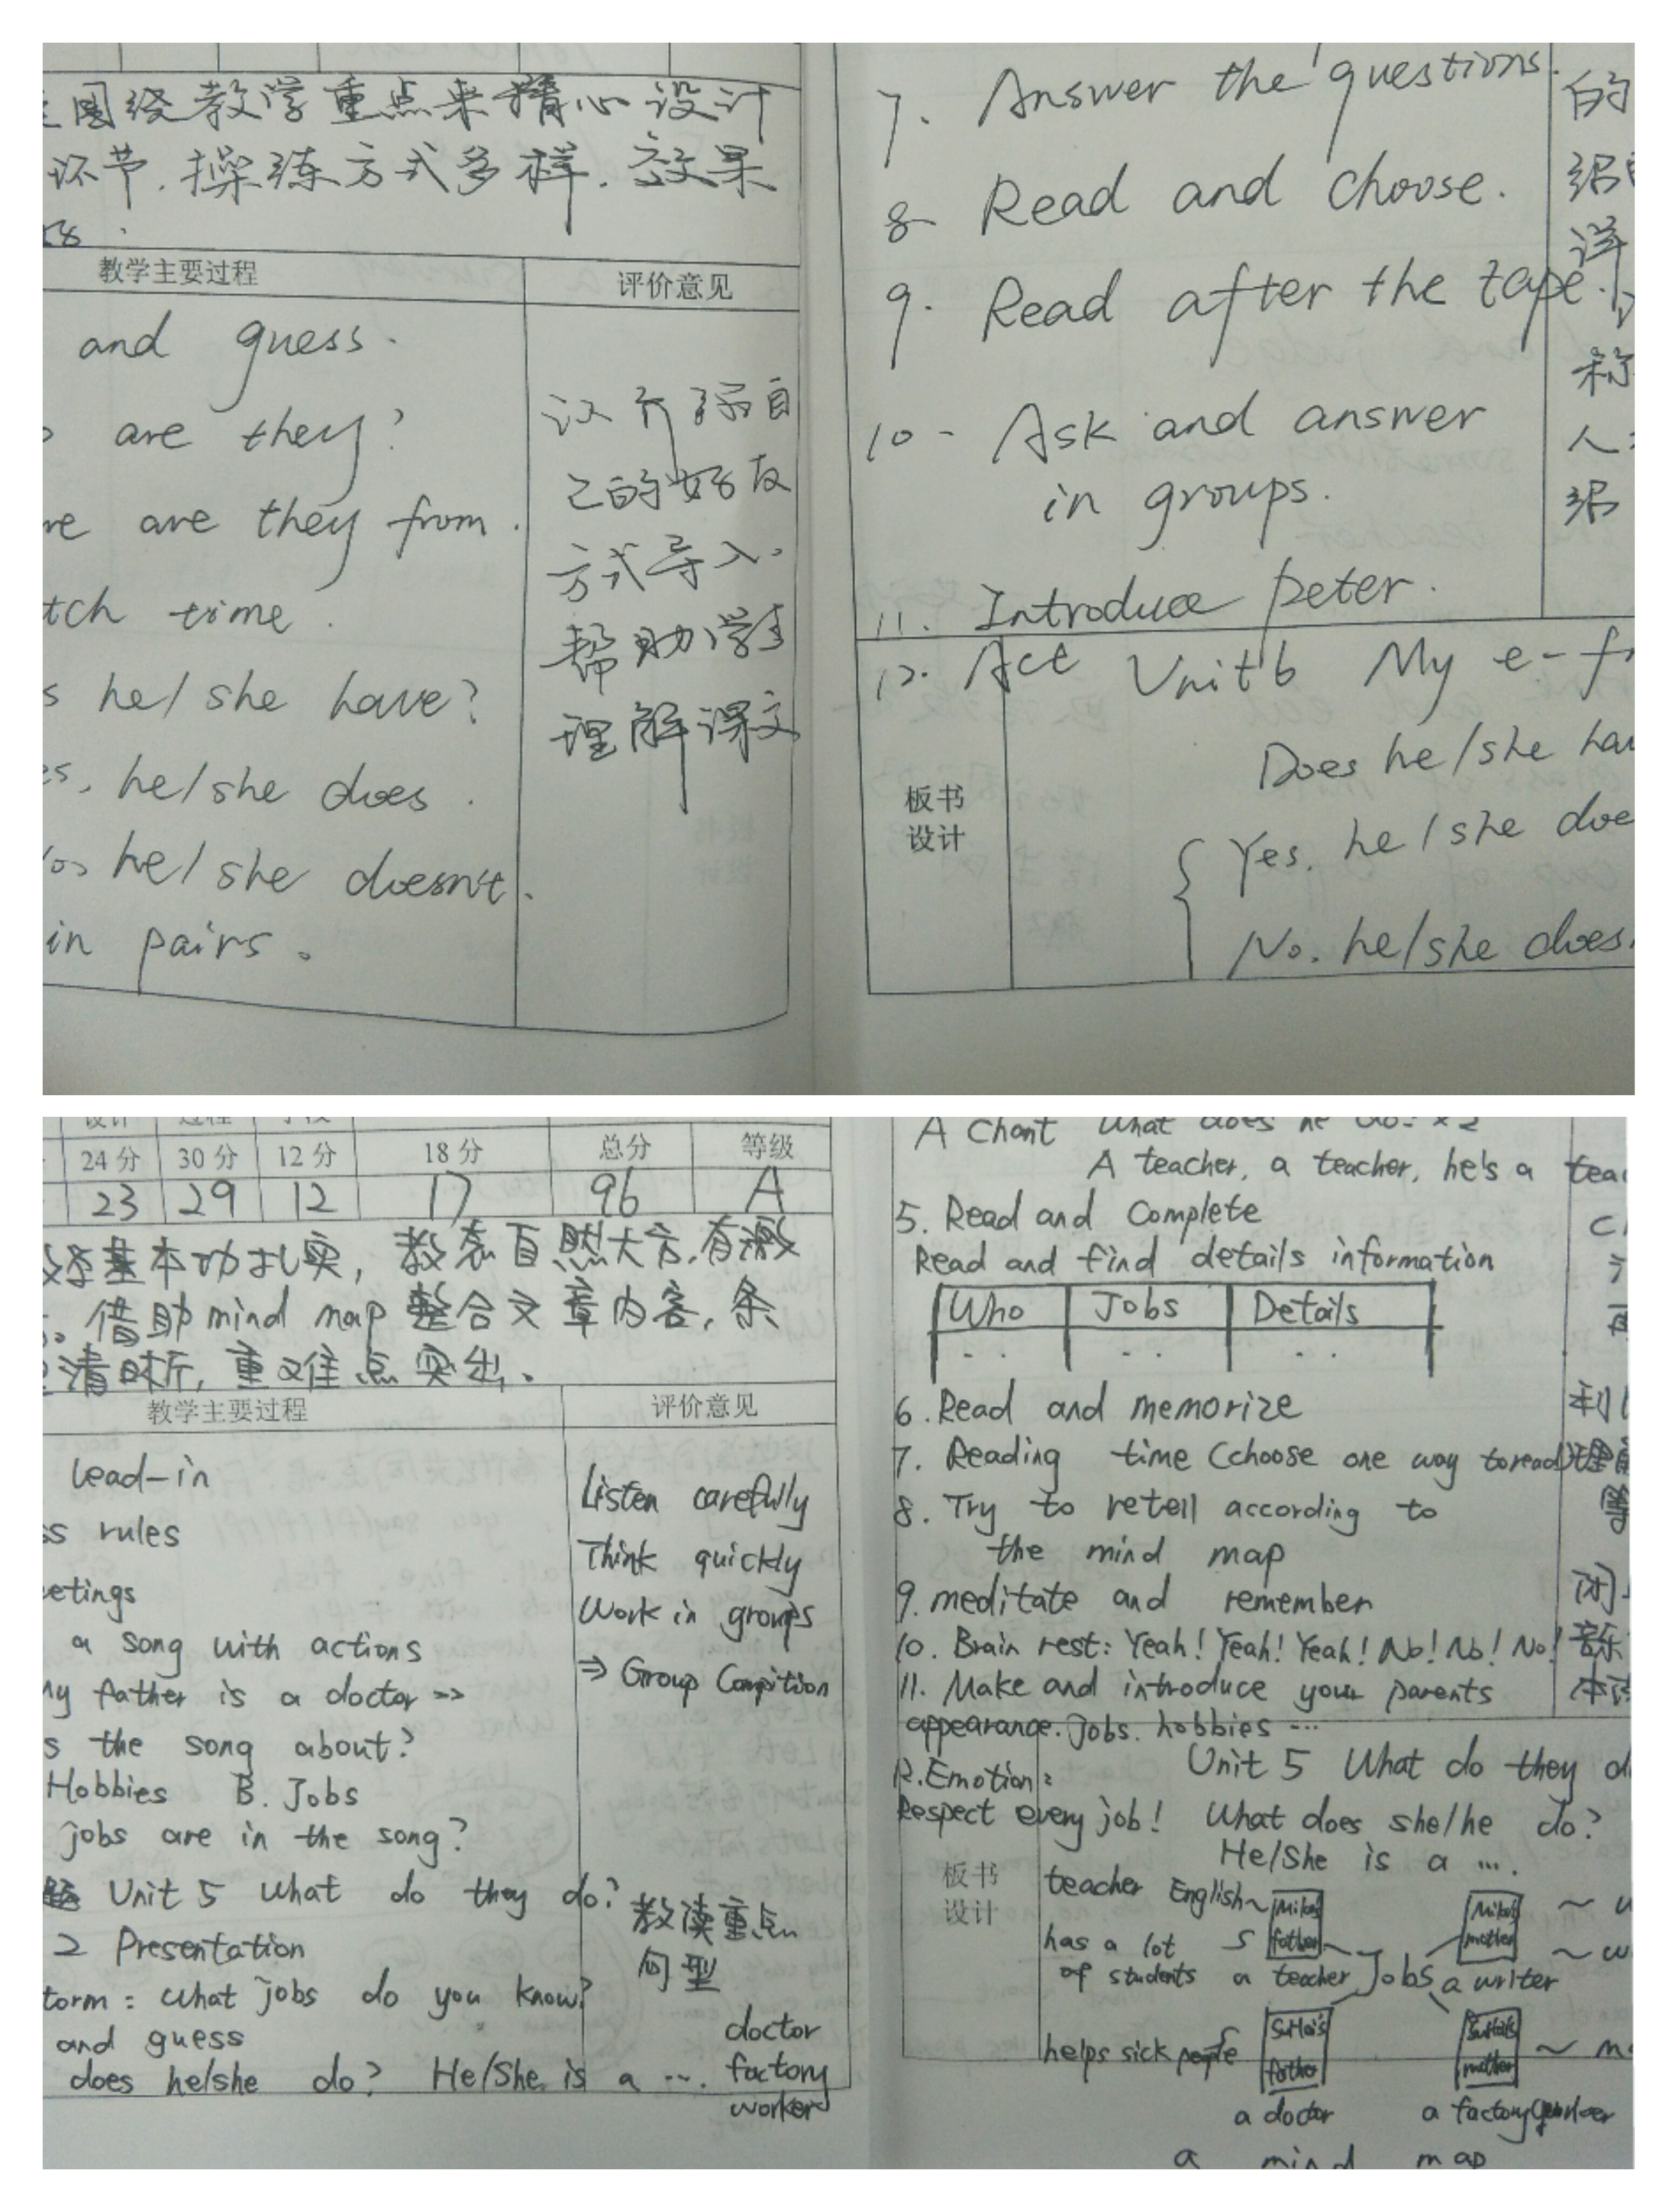 围绕教学重点来精心设计
环节，操练方式多样，效果
教学主要过程 评价意见
and guess.
are they?
are they from.
time.
he/she have?
he/she does.
he/she doesn't.
in pairs。
以介绍自
己的好友
方式导入.
帮助学生
理解课文
7. Answer the questions.
8. Read and choose.
9. Read after the tape.
10. Ask and answer
in groups.
11. Introduce Peter.
12. Act
的
绍
详
称
人
绍
板书
设计
Unit 6 My e-fr
Does he/she hav
Yes. he/she doe
No. he/she does
设计 过程 手段
24分 30分 12分 18分 总分 等级
23 29 12 17 96 A
基本功扎实，教态自然大方，有激
。借助mind map整合文章内容，条
清晰，重难点突出.
教学主要过程 评价意见
lead-in
rules
etings
a song with actions
My father is a doctor
s the song about?
Hobbies B. Jobs
jobs are in the song?
Unit 5 What do they do?
2 Presentation
torm: What jobs do you know?
and guess
does he/she do? He/She is a ….
Listen carefully
Think quickly
Work in groups
⇒ Group Compition
教读重点
句型
doctor
factory
worker
A Chant What does he do? x2
A teacher, a teacher, he's a teac
5. Read and Complete
Read and find details information
Who Jobs Details
.. .. ..
6. Read and memorize
7. Reading time (choose one way to read)
8. Try to retell according to
the mind map
9. meditate and remember
10. Brain rest: Yeah! Yeah! Yeah! No! No! No!
11. Make and introduce your parents
appearance. jobs. hobbies …
12. Emotion:
Respect every job!
利
理解
等
闭
音乐
体
板书
设计
Unit 5 What do they d
What does she/he do?
He/She is a ….
teacher English~ Mike's father
has a lot
of students a teacher
Jobs
Mike's mother
a writer
helps sick people
Su Hai's father
a doctor
Su Hai's mother
a factory worker
a mind map